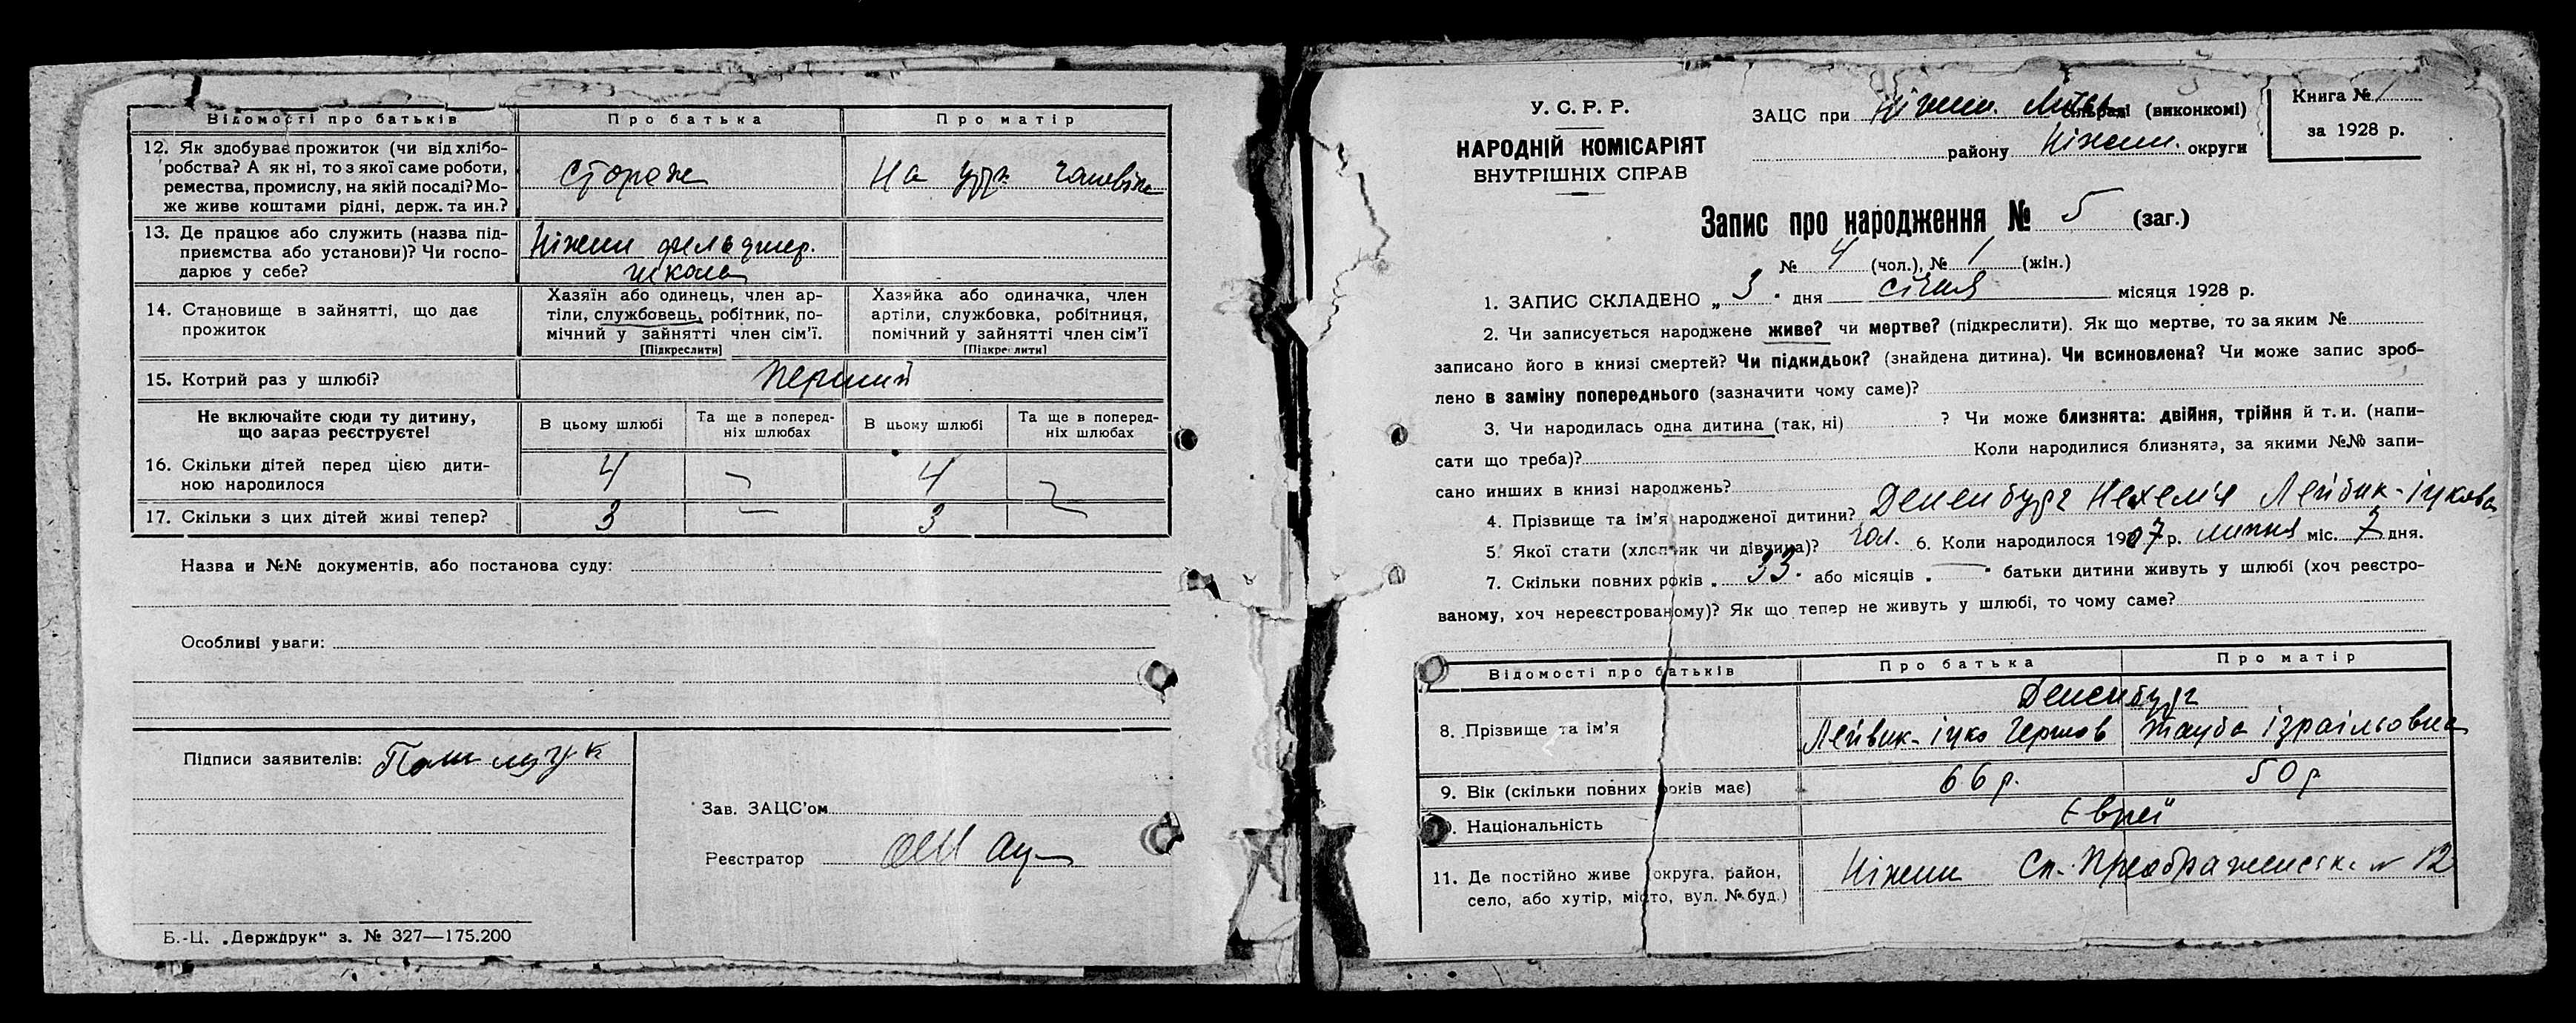 Відомості про батьків | Про батька | Про матір
12. Як здобуває прожиток (чи від хлібо-
робства? А як ні, то з якої саме роботи,
ремества, промислу, на якій посаді? Мо-
же живе коштами рідні, держ. та ин.? | Сторож | На утр. чоловіка
13. Де працює або служить (назва під-
приємства або установи)? Чи госпо-
дарює у себе? | Ніжин фельдшер.
школа
14. Становище в зайнятті, що дає
прожиток | Хазяїн або одинець, член ар-
тіли, службовець, робітник, по-
мічний у зайнятті член сім'ї.
[Підкреслити] | Хазяйка або одиначка, член
артіли, службовка, робітниця,
помічний у зайнятті член сім'ї
[Підкреслити]
15. Котрий раз у шлюбі? | Перший
Не включайте сюди ту дитину,
що зараз реєструєте! | В цьому шлюбі | Та ще в поперед-
ніх шлюбах | В цьому шлюбі | Та ще в поперед-
ніх шлюбах
16. Скільки дітей перед цією дити-
ною народилося | 4 | — | 4 | —
17. Скільки з цих дітей живі тепер? | 3 | — | 3 | —
Назва и №№ документів, або постанова суду:
Особливі уваги:
Підписи заявителів:
Зав. ЗАЦС'ом
Реєстратор
Б.-Ц. „Держдрук" з. № 327—175.200
У. С. Р. Р.
НАРОДНІЙ КОМІСАРІЯТ
ВНУТРІШНІХ СПРАВ
ЗАЦС при Ніжин. сільраді (виконкомі)
району Ніжин. округи
Книга № 1
за 1928 р.
Запис про народження № 5 (заг.)
№ 4 (чол.), № 1 (жін.)
1. ЗАПИС СКЛАДЕНО „3" дня січня місяця 1928 р.
2. Чи записується народжене живе? чи мертве? (підкреслити). Як що мертве, то за яким №
записано його в книзі смертей? Чи підкидьок? (знайдена дитина). Чи всиновлена? Чи може запис зроб-
лено в заміну попереднього (зазначити чому саме)?
3. Чи народилась одна дитина (так, ні) ? Чи може близнята: двійня, трійня й т. и. (напи-
сати що треба)? Коли народилися близнята, за якими №№ запи-
сано инших в книзі народжень?
4. Прізвище та ім'я народженої дитини? Дененбург Нехемія Лейвик-Іцкова
5. Якої стати (хлопчик чи дівчина)? чол. 6. Коли народилося 1907 р. липня міс. 7 дня.
7. Скільки повних років „33" або місяців „—" батьки дитини живуть у шлюбі (хоч реєстро-
ваному, хоч нереєстрованому)? Як що тепер не живуть у шлюбі, то чому саме?
Відомості про батьків | Про батька | Про матір
8. Прізвище та ім'я | Дененбург
Лейвик-Іцко Гершов | Тауба Ізраільовна
9. Вік (скільки повних років має) | 66 р. | 50 р
Національність | Євреї
11. Де постійно живе (округа, район,
село, або хутір, місто, вул. № буд.) | Ніжин Сп.-Преображенськ. № 12